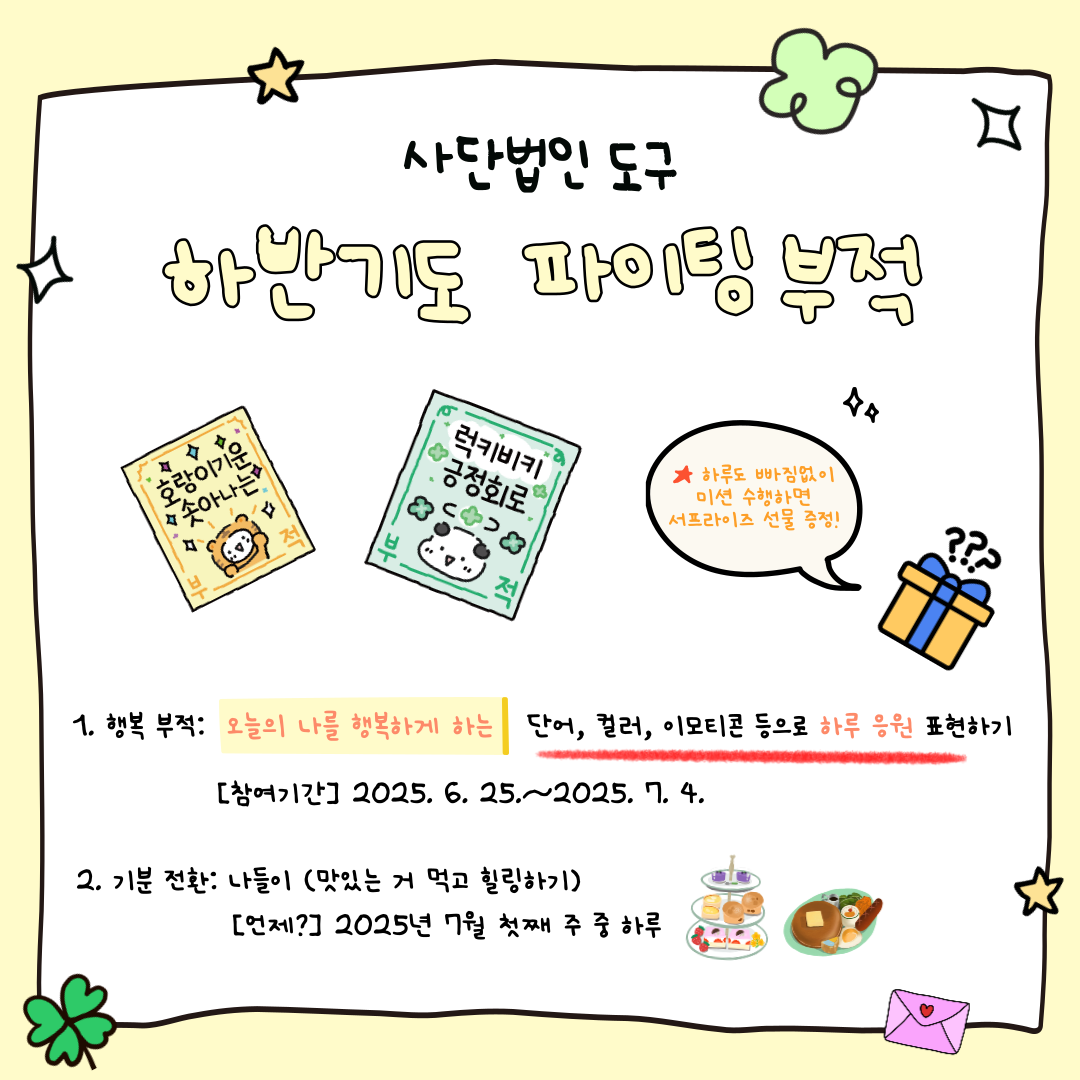 사단법인 도구
하반기도 파이팅 부적
호랑이기운
솟아나는
부 적
럭키비키
긍정회로
부 적
하루도 빠짐없이
미션 수행하면
서프라이즈 선물 증정!
???
1. 행복 부적: 오늘의 나를 행복하게 하는 단어, 컬러, 이모티콘 등으로 하루 응원 표현하기
[참여기간] 2025. 6. 25.~2025. 7. 4.
2. 기분 전환: 나들이 (맛있는 거 먹고 힐링하기)
[언제?] 2025년 7월 첫째 주 중 하루